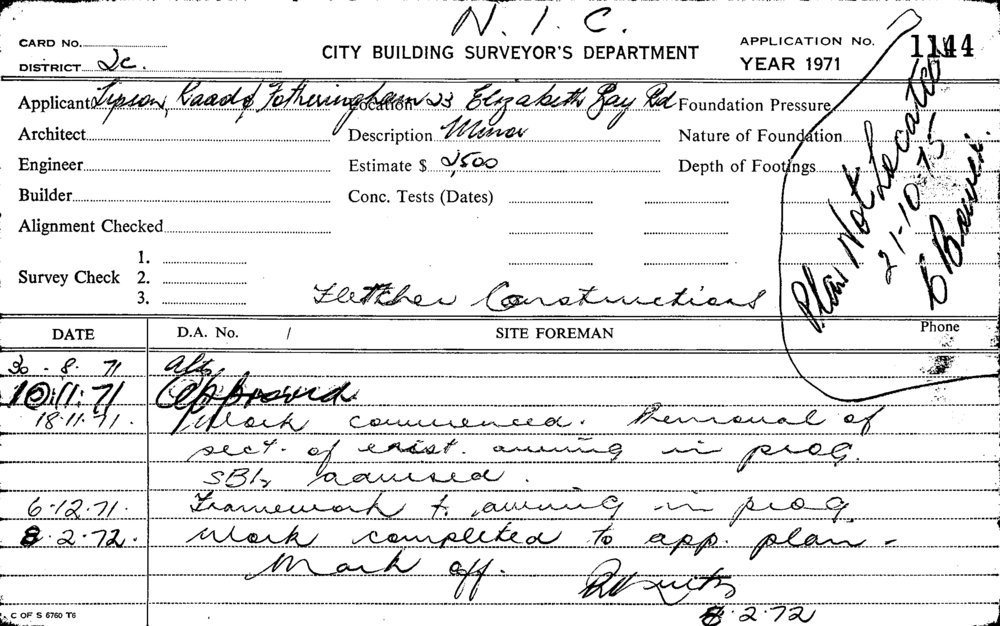 N. I. C.
CARD No.
CITY BUILDING SURVEYOR'S DEPARTMENT
APPLICATION No. 1144
DISTRICT 2c.
YEAR 1971
Applicant Lipson, Kaad & Fotheringham Location 23 Elizabeth Bay Rd Foundation Pressure
Architect Description Minor Nature of Foundation
Engineer Estimate $ 2,500 Depth of Footings
Builder Conc. Tests (Dates)
Alignment Checked
Survey Check 1.
2.
3.
Fletcher Constructions
Plan Not Located
21-10-75
Phone
DATE D.A. No. / SITE FOREMAN
30 - 8. 71 Alts,
10:11:71 Approved.
18.11.71. Work commenced. Removal of
sect. of exist. awning in prog.
SBI, advised.
6.12.71. Framework t. awning in prog.
8.2.72. Work completed to app. plan -
Mark off.
8.2.72
C OF S 6760 T6